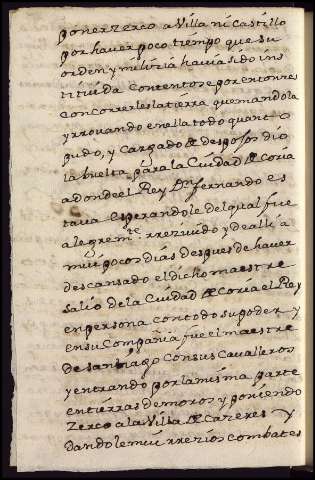 poner zerco a Villa ni Castillo
por haver poco tiempo que su
orden y milizia havia sido ins
tituida contentose por entonzes
con correrles la tierra quemandola
y rrovando en ella todo quanto
pudo, y cargado de despojos dio
la buelta para la Ciudad de Coria
adonde el Rey Dn fernando es
tava esperandole del qual fue
alegremte rrezivido y de alli a
mui pocos dias despues de haver
descansado el dicho maestre
salio de la Ciudad de Coria el Rey
en persona con todo su poder y
en su Compañia fue el maestre
de santiago con sus Cavalleros
y entrando por la misma parte
en tierras de moros y poniendo
zerco a la Villa de Cazeres y
dandole mui rrezios combates